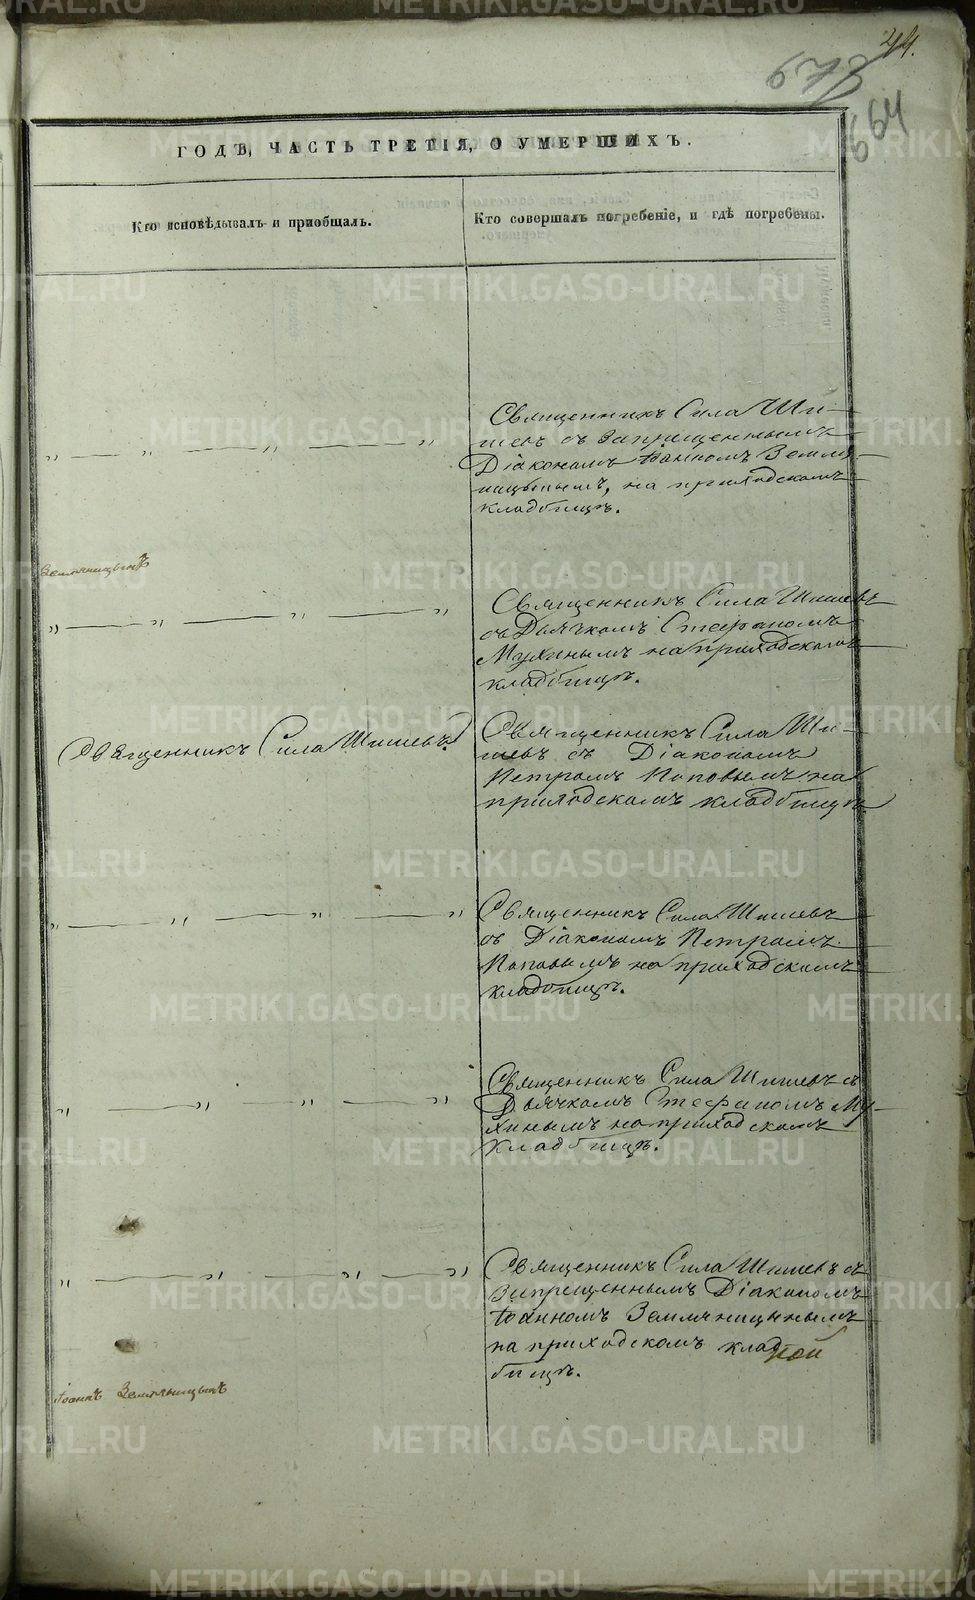 24.
673
664
ГОДЪ, ЧАСТЬ ТРЕТІЯ, О УМЕРШИХЪ.
Кто исповѣдывалъ и приобщалъ.
Кто совершалъ погребеніе, и гдѣ погребены.
Священникъ Сила Ши-
шевъ съ запрещеннымъ
Діакономъ Іоанномъ Земля-
ницынымъ, на приходскомъ
кладбищѣ.
Земляницынъ
Священникъ Сила Шишевъ
съ Дьячкомъ Стефаномъ
Мухинымъ на приходскомъ
кладбищѣ.
Священникъ Сила Шишевъ.
Священникъ Сила Ши-
шевъ съ Діакономъ
Петромъ Поповымъ на
приходскомъ кладбищѣ
Священникъ Сила Шишевъ
съ Діакономъ Петромъ
Поповымъ на приходскомъ
кладбищѣ.
Священникъ Сила Шишевъ съ
Дьячкомъ Стефаномъ Му-
хинымъ на приходскомъ
кладбищѣ.
Священникъ Сила Шишевъ съ
запрещеннымъ Діакономъ
Іоанномъ Земляницынымъ
на приходскомъ клад
бищѣ.
Іоаннъ Земляницынъ
METRIKI.GASO-URAL.RU